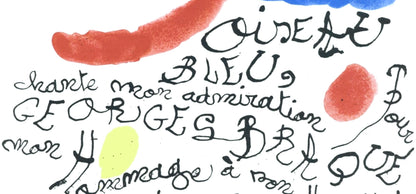 OiSEAU
BLEU,
chante mon admiration
pour
GEORGES BRAQUE
mon Hommage à son